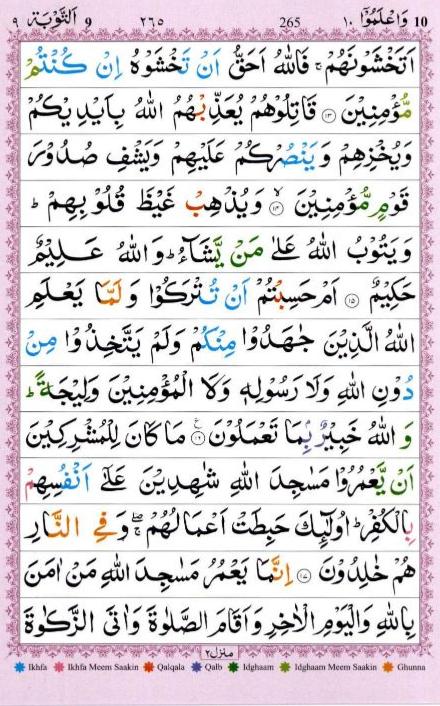 ٩ اَلتَّوْبَة 9 ٢٦٥ 265 وَاعْلَمُوْۤا ١٠ 10
اَتَخْشَوْنَهُمْ ۚ فَاللّٰهُ اَحَقُّ اَنْ تَخْشَوْهُ اِنْ كُنْتُمْ
مُّؤْمِنِيْنَ ﴿١٣﴾ قَاتِلُوْهُمْ يُعَذِّبْهُمُ اللّٰهُ بِاَيْدِيْكُمْ
وَيُخْزِهِمْ وَيَنْصُرْكُمْ عَلَيْهِمْ وَيَشْفِ صُدُوْرَ
قَوْمٍ مُّؤْمِنِيْنَ ﴿١٤﴾ۙ وَيُذْهِبْ غَيْظَ قُلُوْبِهِمْ ؕ
وَيَتُوْبُ اللّٰهُ عَلٰى مَنْ يَّشَآءُ ؕ وَاللّٰهُ عَلِيْمٌ
حَكِيْمٌ ﴿١٥﴾ اَمْ حَسِبْتُمْ اَنْ تُتْرَكُوْا وَلَمَّا يَعْلَمِ
اللّٰهُ الَّذِيْنَ جٰهَدُوْا مِنْكُمْ وَلَمْ يَتَّخِذُوْا مِنْ
دُوْنِ اللّٰهِ وَلَا رَسُوْلِهٖ وَلَا الْمُؤْمِنِيْنَ وَلِيْجَةً ؕ
وَاللّٰهُ خَبِيْرٌۢ بِمَا تَعْمَلُوْنَ ﴿١٦﴾ مَا كَانَ لِلْمُشْرِكِيْنَ
اَنْ يَّعْمُرُوْا مَسٰجِدَ اللّٰهِ شٰهِدِيْنَ عَلٰۤى اَنْفُسِهِمْ
بِالْكُفْرِ ؕ اُولٰٓئِكَ حَبِطَتْ اَعْمَالُهُمْ ۖۚ وَفِى النَّارِ
هُمْ خٰلِدُوْنَ ﴿١٧﴾ اِنَّمَا يَعْمُرُ مَسٰجِدَ اللّٰهِ مَنْ اٰمَنَ
بِاللّٰهِ وَالْيَوْمِ الْاٰخِرِ وَاَقَامَ الصَّلٰوةَ وَاٰتَى الزَّكٰوةَ
منزل ٢
Ikhfa Ikhfa Meem Saakin Qalqala Qalb Idghaam Idghaam Meem Saakin Ghunna